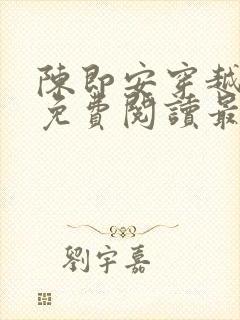 陳即安穿越
免費閱讀最
劉宇嘉